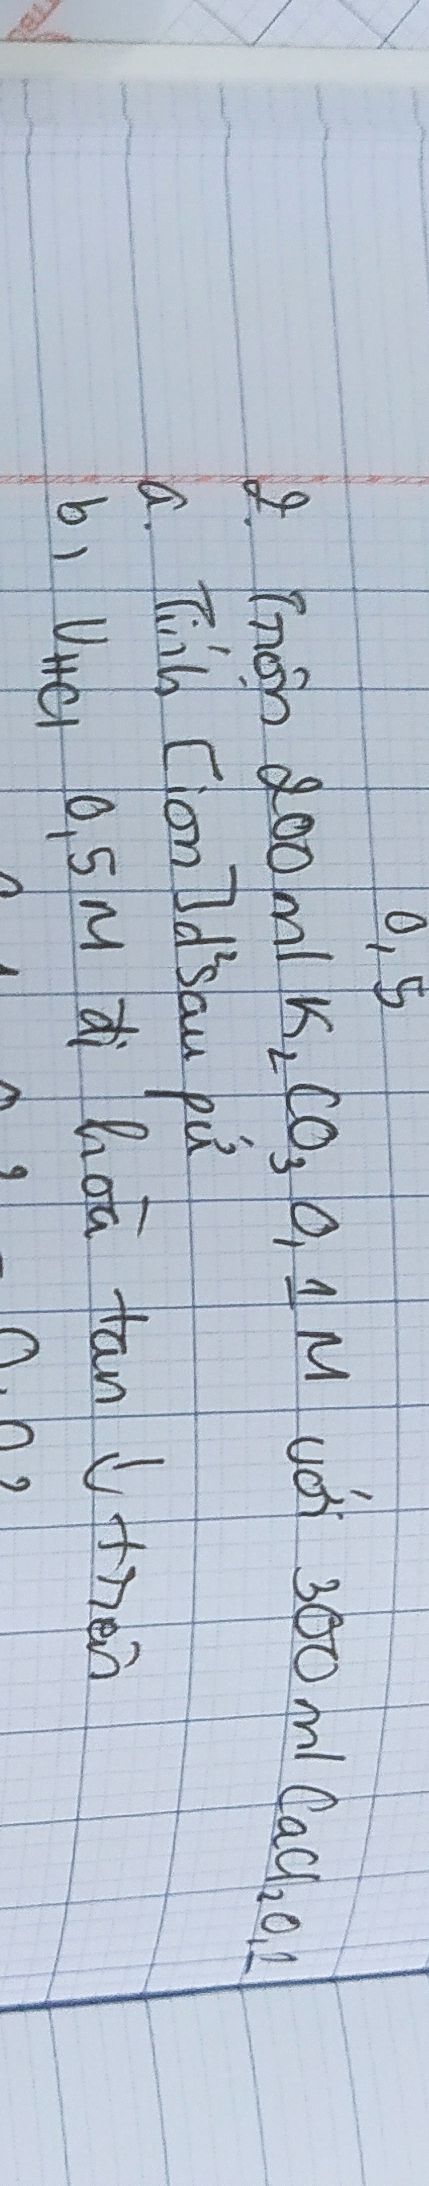 0,5
2. Trộn 200ml K₂CO₃ 0,1M với 300ml CaCl₂ 0,1
a. Tính [ion] d² sau pứ
b, VHCl 0,5M đi hoà tan ↓ trên